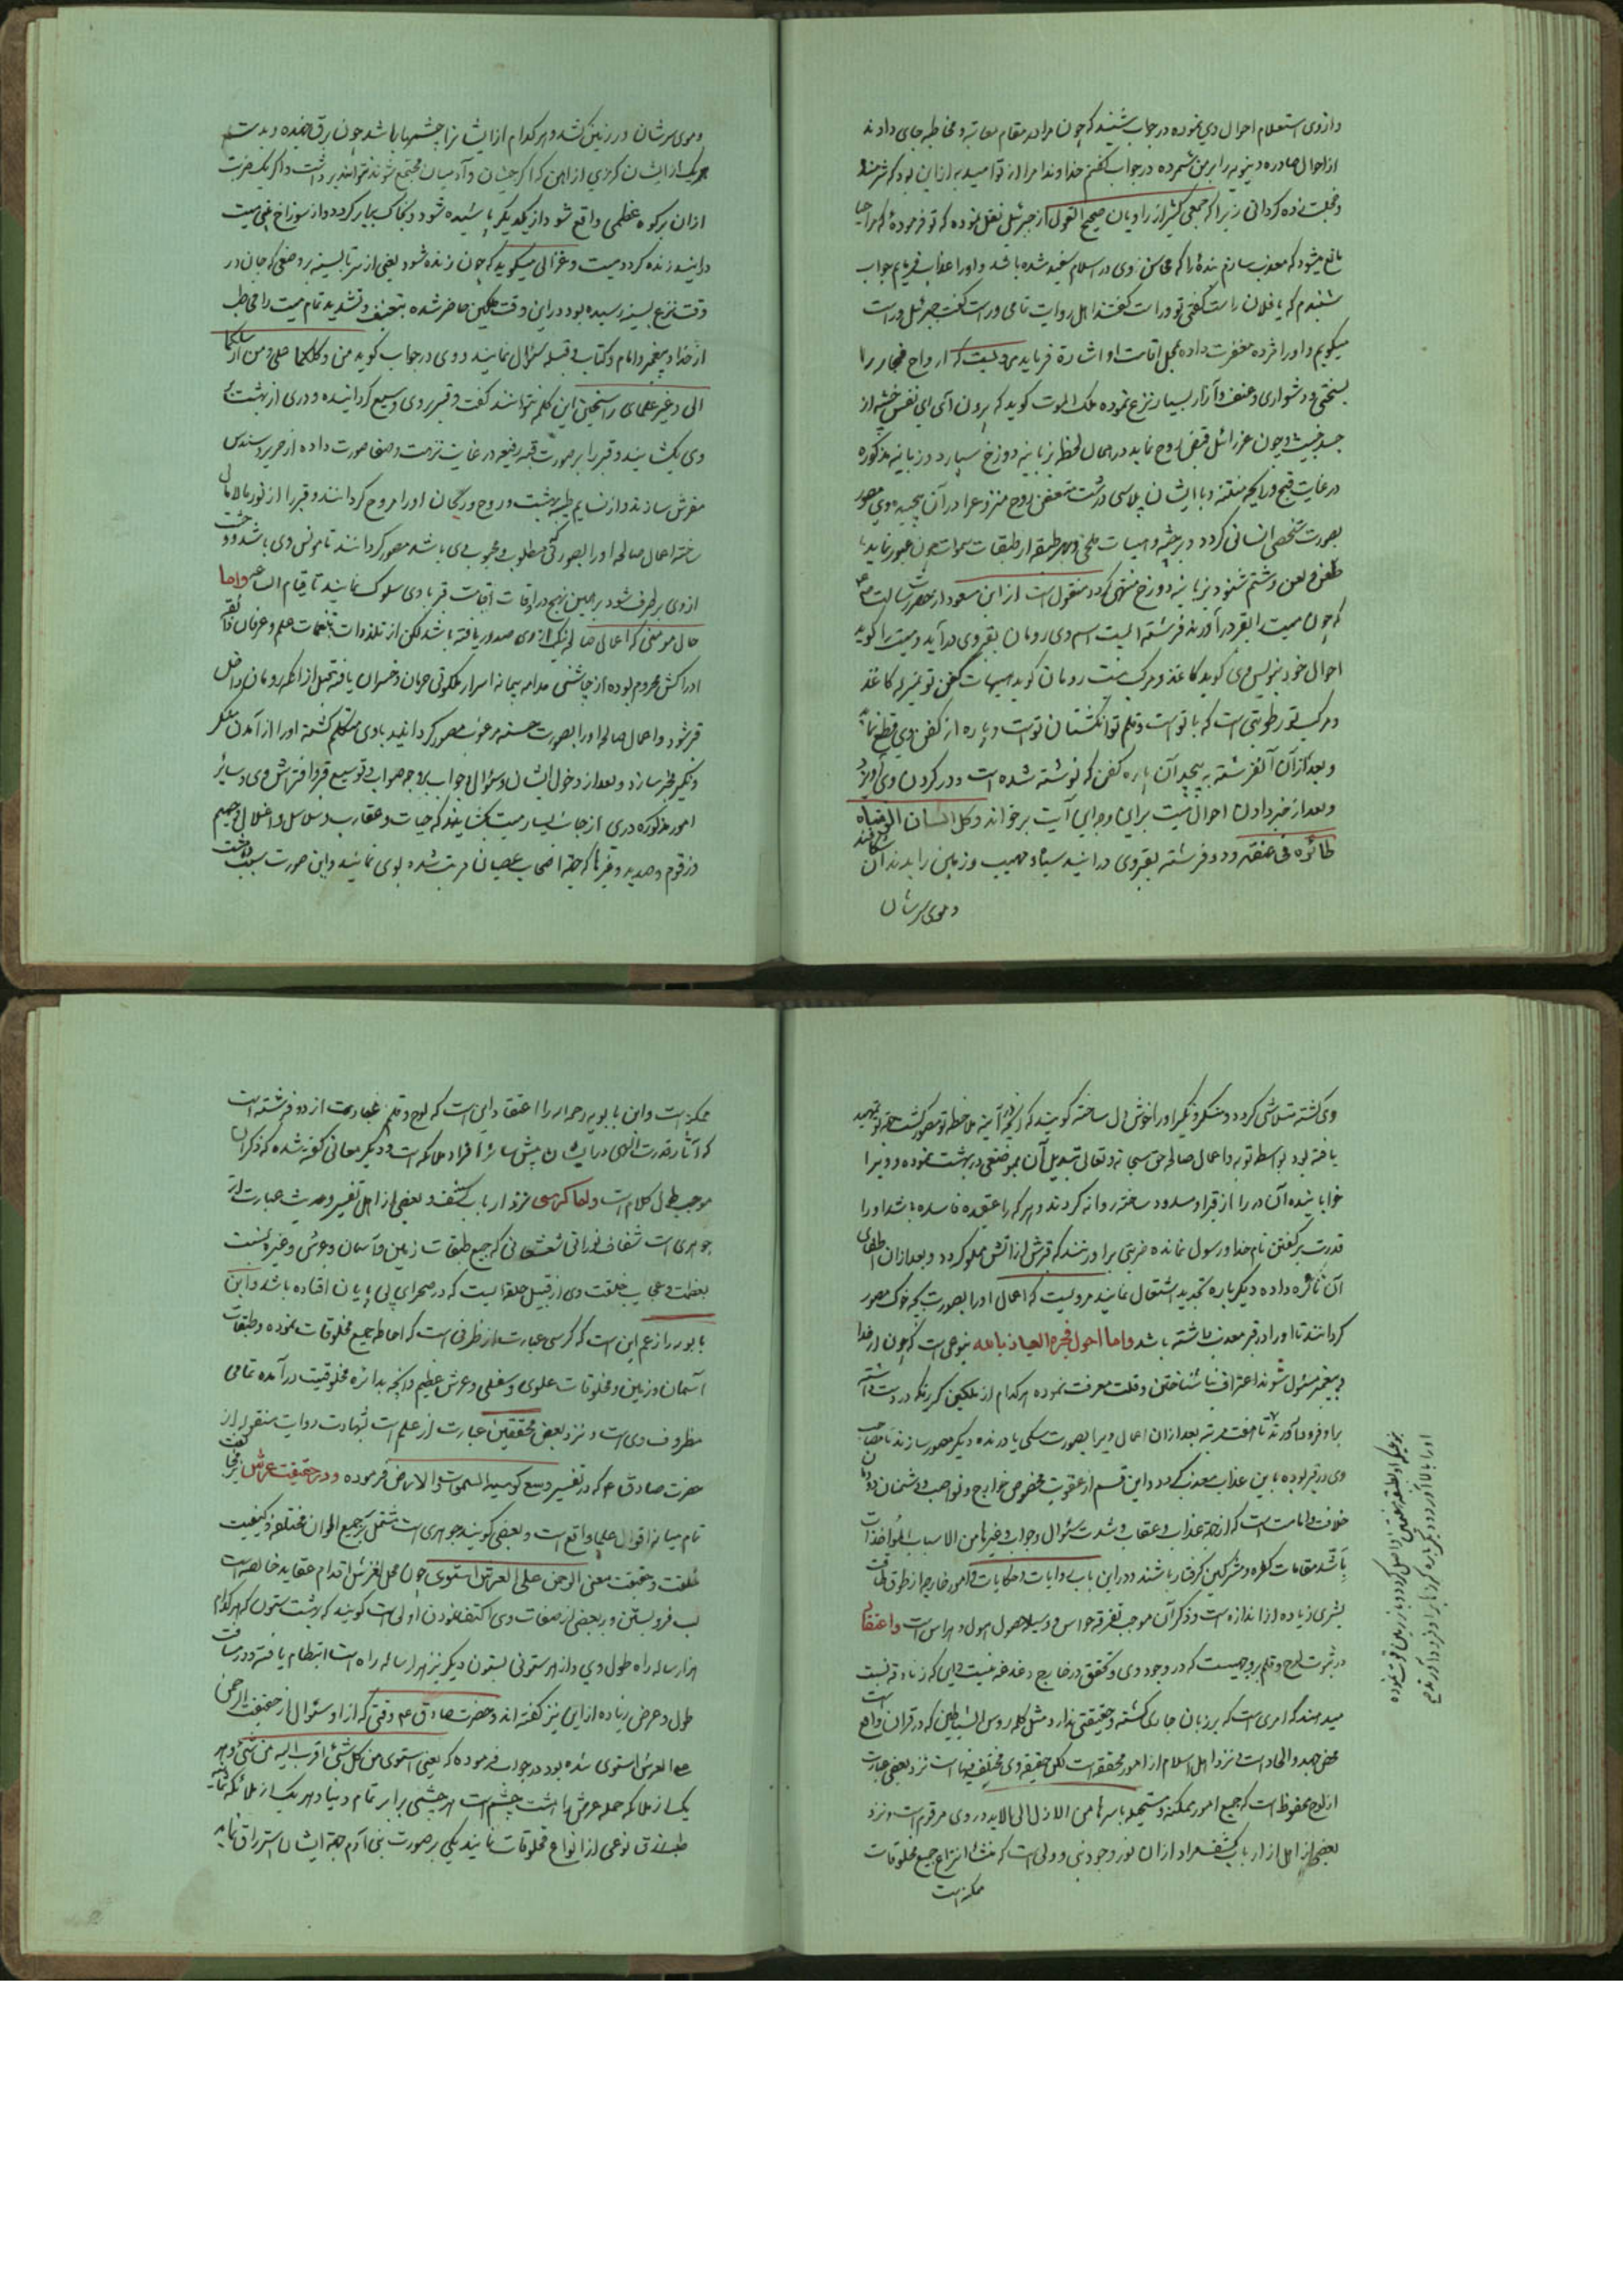 و از وی استعلام احوال وی نموده در جواب شنید که چون مرا در مقام معاتبه و مخاطبه جای دادند
از احوال صادره دنیویه برابر من شمرده در جواب گفتم خداوندا مرا از تو امید به از این بود که شرمنده
و خجلت زده گردانی زیرا که جمعی کثیر از راویان صحیح القول از جبرئیل نقل نموده که تو فرمودهٔ که مرا حیا
مانع میشود که معذب سازم بندهٔ را که محاسن وی در اسلام سفید شده باشد و او را عذاب فرمایم جواب
شنیدم که یا فلان راست گفتی تو و راست گفتند اهل روایت تمامی و راست گفت جبرئیل و راست
میگویم و او را مژده مغفرت داده محل اقامت او اشارة فرماید مرویست که ارواح فجار را
بسختی و دشواری و عنف و آزار بسیار نزع نموده ملک الموت گوید که برون آی ای نفس خبیثه از
جسد خبیث و چون عزرائیل قبض روح نماید در همان لحظه بزبانیه دوزخ سپارد و زبانیه مذکوره
در غایت قبح و رایحه منتنه و با ایشان پلاسی درشت متعفن روح منزوعرا در آن پیچیده وی مصور
بصورت شخص انسانی گردد و بهر طبقه از طبقات سموات چون عبور نماید
طعن و لعن و شتم شنود و بزبانیه دوزخ منتهی گردد منقول است از ابن مسعود از حضرت رسالت
که چون میت را بقبر درآورند فرشته المیت اسم وی رومان بقبر وی درآید و میت را گوید
احوال خود بنویس وی گوید کاغذ و مرکب نیست رومان گوید هیهات کفن تو بمنزله کاغذ
و مرکب تو رطوبتی است که با تو است و قلم تو انگشتان تو است و پاره از کفن وی قطع نماید
و بعد از آن آنفرشته به پیچد آن پاره کفن که نوشته شده است و در گردن وی آویزد
و بعد از خبر دادن احوال میت برای وی این آیت برخواند و کل انسان الزمناه
طائره فی عنقه و دو فرشته بقبر وی درآیند سیاه و مهیب و زمین را بدندان شکافند
و موی سرشان
و موی سرشان در زمین کشد و هر کدام از ایشانرا چشمها باشد چون برق جهنده و بدست
هر یک از ایشان گرزی از آهن که اگر جنیان و آدمیان مجتمع شوند نتوانند برداشت و اگر یک ضربت
از آن بر کوه عظیمی واقع شود از یکدیگر پاشیده شود و بخاک یکسان گردد و از سوراخ بینی میت
درآیند زنده گردد میت و غزالی میگوید که چون زنده شود یعنی از سر تا بسینه بر وضعی که جان در
وقت نزع بسینه رسیده بود در این وقت ملکین حاضر شده بتعنیف و تشدید تمام میت را مخاطب
از خدا و پیغمبر و امام و کتاب و قبله سؤال نمایند و وی در جواب گوید من وکلکما علی و من ارسلکما
الی و غیر علمای راسخین این کلمه نتوانند گفت و قبر بر وی وسیع گردانیده و دری از بهشت
وی بگشایند و قبر را بر صورت قبه رفیعه در غایت نزهت و صفا صورت داده از حریر و سندس
مفرش سازند و از نسایم طیبه بهشت و روح و ریحان او را مروح گردانند و قبر را از نور مالامال
ساخته اعمال صالحه او را بصورتی مطلوب و محبوب وی باشد مصور گردانند تا مونس وی باشد و وحشت
از وی برطرف شود بر همین نهج در اوقات اقامت قبر با وی سلوک نمایند تا قیام الساعه و اما
حال مومنی که اعمال صالحه نیک از وی صدور یافته باشد لکن از تلذذات تنعمات علم و عرفان ذائقه
ادراکش محروم بوده از چاشنی مدام پیمانه اسرار ملکوتی حرمان و خسران یافته قبل از آنکه رومان داخل
قبر شود و اعمال صالحه او را بصورت حسنه مرغوبه مصور گردانید با وی متکلم گشته او را از آمدن منکر
و نکیر مخبر سازد و بعد از دخول ایشان و سؤال و جواب بر وجه صواب و توسیع قبر و افتراش وی و سایر
امور مذکوره دری از جانب یسار میت بگشایند که حیات و عقارب و سلاسل و اغلال و جحیم
و زقوم و صدید و غیرها که جهة اصحاب عصیان مرتب شده بوی نمایند و این صورت سبب وحشت
وی گشته متلاشی گردد و منکر و نکیر او را خوش دل ساخته گویند که آنچه در آینه ملاحظه تو مصور گشت جهة تو تمهید
یافته بود بواسطه توبه و اعمال صالحه حق سبحانه و تعالی تبدیل آن بموضعی در بهشت نموده و ویرا
خوابانیده آن در را از قبر او مسدود ساخته روانه گردند و هر که را عقیده فاسده باشد او را
قدرت بر گفتن نام خدا و رسول نمانده ضربتی بر او زنند که قبرش از آتش مملو گردد و بعد از آن اطفای
آن نائره داده دیگر باره تجدید اشتعال نمایند مرویست که اعمال او را بصورت بچه خوک مصور
گردانند تا او را در قبر معذب داشته باشد و اما احوال فجره العیاذ بالله بنوعی است که چون از خدا
و پیغمبر مسئول شوند اعتراف بناشناختن و قلت معرفت نموده هر کدام از ملکین گرزی که در دست داشته
بر او فرود آورند تا هفت مرتبه بعد از آن اعمال ویرا بصورت سگی یا درنده دیگر مصور سازند تا مصاحب
وی در قبر بوده باین عذاب معذب گردد و این قسم از عقوبت مخصوص خوارج و نواصب و دشمنان خاندان
خلافت و امامت است که از جهة عذاب و عقاب و شدت سؤال و جواب و غیرها من الاسباب المؤاخذات
باشد مقامات کفره و مشرکین گرفتار باشند و در این باب روایات و حکایات و امور خارج از طوق طاقت
بشری زیاده از اندازه است و ذکر آن موجب تفرقه حواس و وسیله حصول هول و هراس است و اعتقاد
در ثبوت لوح و قلم بر وجهیست که در وجود وی و تحقق در خارج دغدغه نیست و این که زنادقه نسبت
میدهند که امری است که بر زبان جاری گشته و حقیقتی ندارد مثل کلمه روس الشیاطین که در قران واقع است
محض جهد و الحاد است و نزد اهل اسلام از امور محققه است لکن حقیقة وی مختلف فیها است نزد بعضی عبارت
از لوح محفوظ است که جمیع امور ممکنه و مستحیله باسرها من الازل الی الابد در وی مرقوم است و نزد
بعضی از اهل از ارباب کشف مراد از آن نور وجود نبی و ولی است که منشاء انتزاع جمیع مخلوقات
ممکنه است
ممکنه است و ابن بابویه رحمه الله را اعتقاد این است که لوح و قلم عبارت از دو فرشته است
که آثار قدرت الهی در ایشان بیش سائر افراد ملائکه است و دیگر معانی گفته شده که ذکر آن
موجب طول کلام است و اما کرسی نزد ارباب کشف و بعضی از اهل تفسیر و حدیث عبارت از
جوهری است شفاف نورانی شعشعانی که جمیع طبقات زمین و آسمان و عرش و غیره نسبت
بعظمت و عجایب خلقت وی از قبیل حلقه ایست که در صحرای بی پایان افتاده باشد و ابن
بابویه را زعم این است که کرسی عبارت از ظرفی است که احاطه جمیع مخلوقات نموده و طبقات
آسمان و زمین و مخلوقات علوی و سفلی و عرش عظیم و آنچه بدائره مخلوقیت درآمده تمامی
مظروف وی است و نزد بعض محققین عبارت از علم است بشهادت روایت منقوله از
حضرت صادق ع که در تفسیر وسع کرسیه السموات والارض فرموده و در حقیقت عرش
تمام میانه اقوال علما واقع است و بعضی گویند جوهری است مشتمل بر جمیع الوان مختلفه و کیفیت
خلقت و حقیقت معنی الرحمن علی العرش استوی چون محل لغزش اقدام عقاید خالصه است
لب فرو بستن و ببعضی از صفات وی اکتفا نمودن اولی است گویند که هشت ستون که هر کدام
هزار ساله راه طول وی و از هر ستونی بستون دیگر نیز هزار ساله راه است انتظام یافته و در مسافت
طول و عرض زیاده از این نیز گفته اند و حضرت صادق ع وقتی که از او سئوال از حقیقت الرحمن
علی العرش استوی شده بود در جواب فرموده که یعنی استوی من کل شئ فلیس شئ اقرب الیه من شئ و هر
یک از ملائکه حمله عرش را هشت چشم است هر چشمی برابر تمام دنیا و هر یک از ملائکه
طلب رزق نوعی از انواع مخلوقات نمایند یکی بر صورت بنی آدم جهة ایشان استرزاق نماید